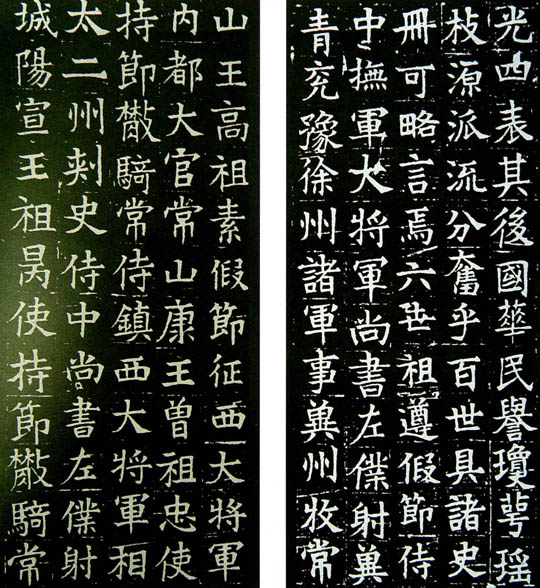 光四表其後國華民譽瓊萼瑤
枝源派流分奮乎百世具諸史
冊可略言焉六世祖遵假節侍
中撫軍大將軍尚書左僕射冀
青兗豫徐州諸軍事冀州牧常
山王高祖素假節征西大將軍
内都大官常山康王曾祖忠使
持節散騎常侍鎮西大將軍相
太二州刺史侍中尚書左僕射
城陽宣王祖昺使持節散騎常